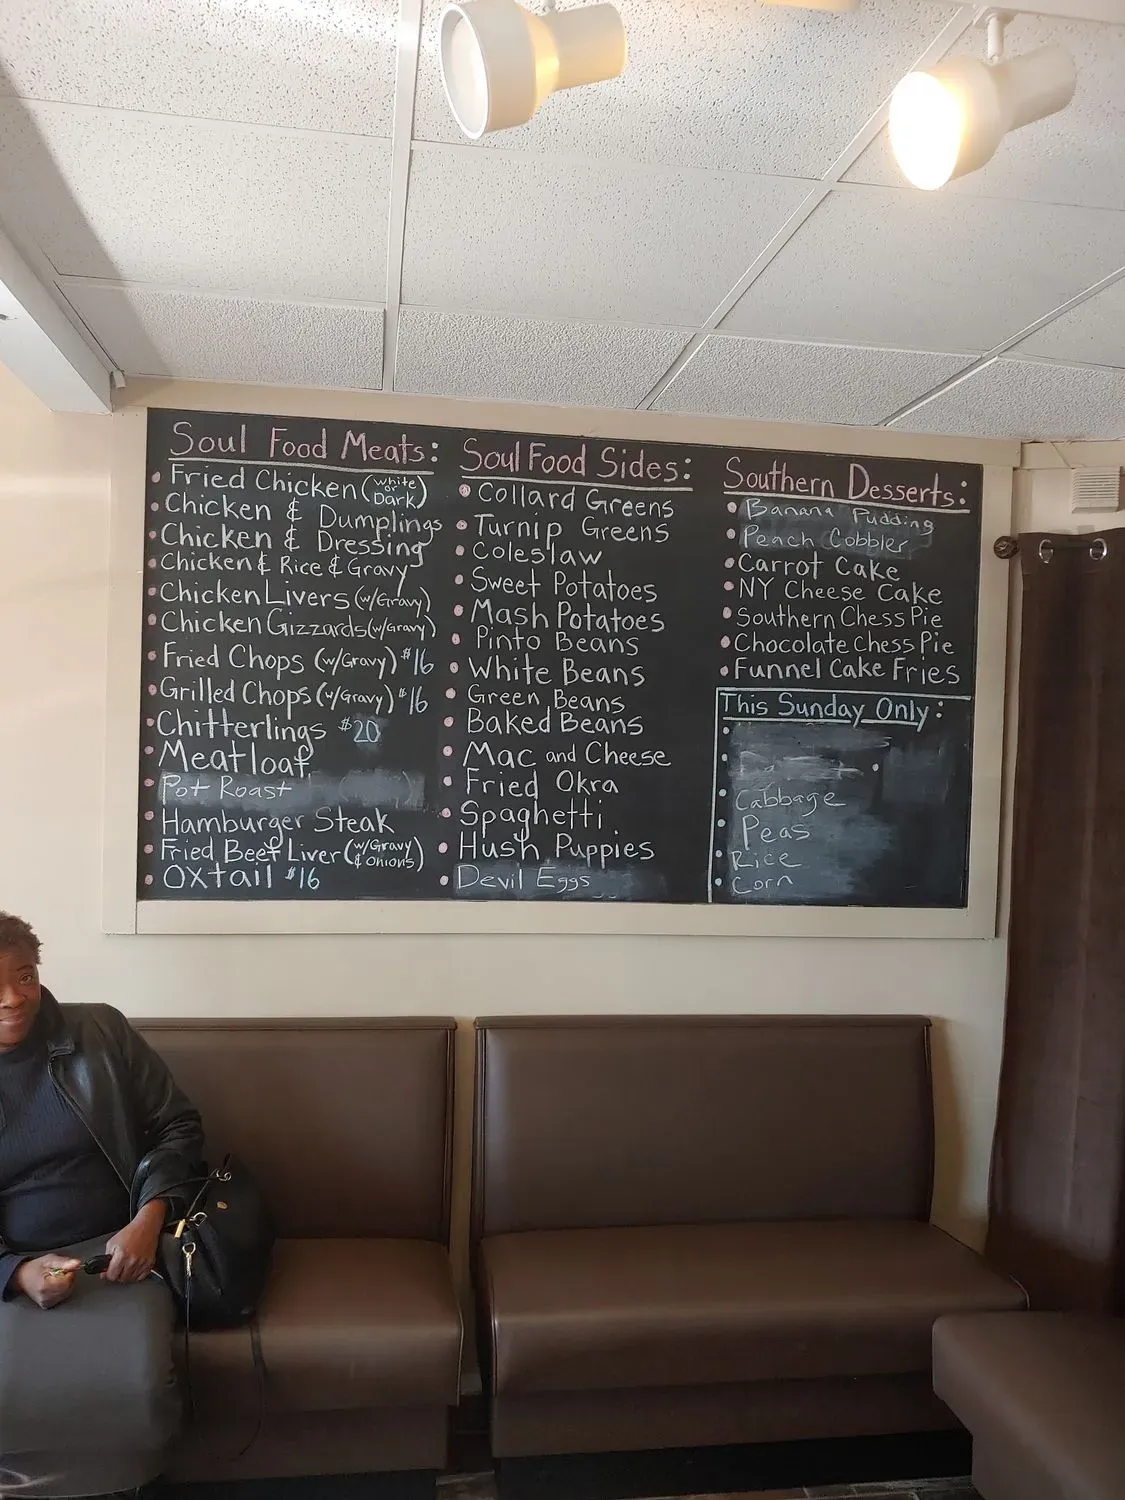 Soul Food Meats:
Fried Chicken (white or Dark)
Chicken & Dumplings
Chicken & Dressing
Chicken & Rice & Gravy
Chicken Livers (w/Gravy)
Chicken Gizzards (w/Gravy)
Fried Chops (w/Gravy) $16
Grilled Chops (w/Gravy) $16
Chitterlings $20
Meatloaf
Pot Roast
Hamburger Steak
Fried Beef Liver (w/Gravy & Onions)
Oxtail $16
Soul Food Sides:
Collard Greens
Turnip Greens
Coleslaw
Sweet Potatoes
Mash Potatoes
Pinto Beans
White Beans
Green Beans
Baked Beans
Mac and Cheese
Fried Okra
Spaghetti
Hush Puppies
Devil Eggs
Southern Desserts:
Banana Pudding
Peach Cobbler
Carrot Cake
NY Cheese Cake
Southern Chess Pie
Chocolate Chess Pie
Funnel Cake Fries
This Sunday Only:
Cabbage
Peas
Rice
Corn